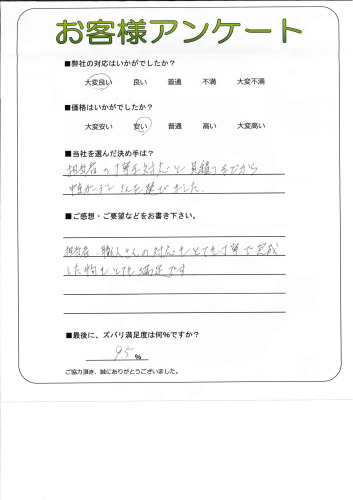 お客様アンケート
■弊社の対応はいかがでしたか?
大変良い 良い 普通 不満 大変不満
■価格はいかがでしたか?
大変安い 安い 普通 高い 大変高い
■当社を選んだ決め手は?
担当者の丁寧な対応と見積り等だから
ガーデンさんを選びました.
■ご感想・ご要望などをお書き下さい。
担当者、職人さんの対応もとても丁寧で完成
した物もとても満足です
■最後に、ズバリ満足度は何%ですか?
95 %
ご協力頂き、誠にありがとうございました。